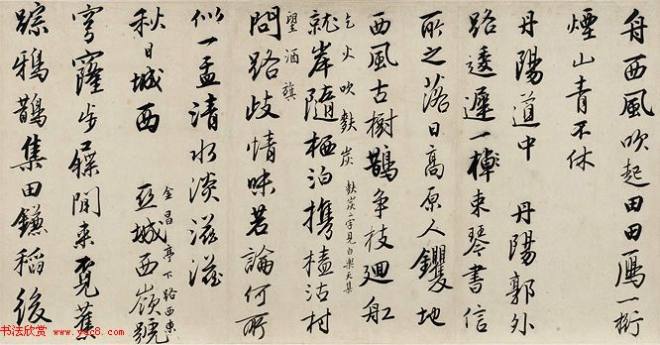 舟西風吹起田田鴈一行
煙山青不休
丹陽道中 丹陽郭外
路逶遲一棹東琴書信
所之落日高原人钁地
西風古樹鵲爭枝廻舡
乞火吹麩炭 麩炭二字見白樂天集
就岸隨栖泊携榼沽村
望酒旗
問路歧情味若論何所
似一盂清水淡滋滋
金昌亭下路西東
秋日城西 亞城西嶺號
穹窿步屧閒來覓蕉
踪鴉鵲集田鎌稻後
书法欣赏 www.yac8.com